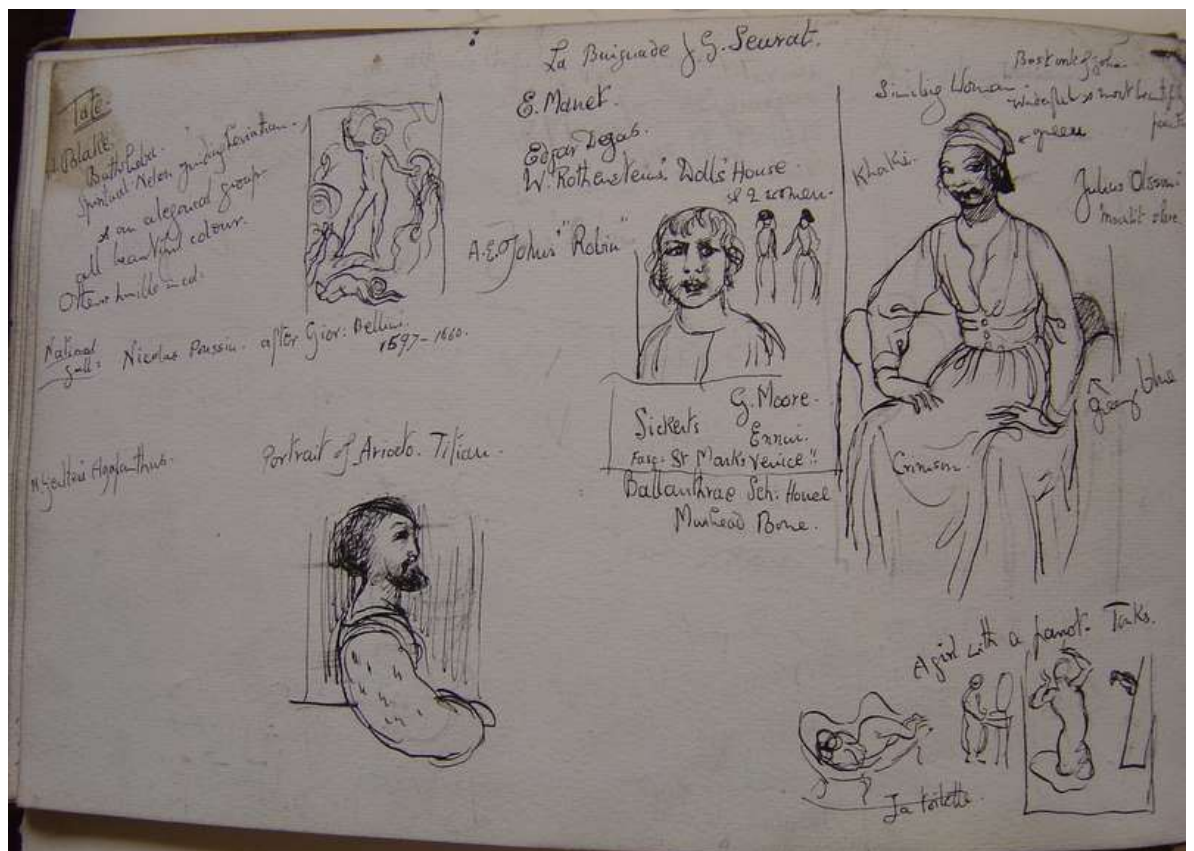 Tate.
Blake.
Bathsheba.
Spiritual Nelson guiding Leviathan.
& an alegorical group
all beautiful colour.
Others smille in col:
National
Gall:
Nicolas Poussin. after Giov: Bellini.
1597-1660.
Agapanthus.
Portrait of Ariosto. Titian.
La Baignade J. G. Seurat.
E. Manet.
Edgar Degas.
W. Rothenstein's Doll's House
& 2 women.
A.E. John's "Robin"
G. Moore.
Sickerts Ennui.
St Marks Venice
Ballanthrae Sch: House
Muirhead Bone.
Smiling Woman
Best work of John
Wonderful & most beautifully
green
Khaki.
Julius Olsson:
Crimson.
greeny blue
A girl with a parrot. Tonks.
La toilette.